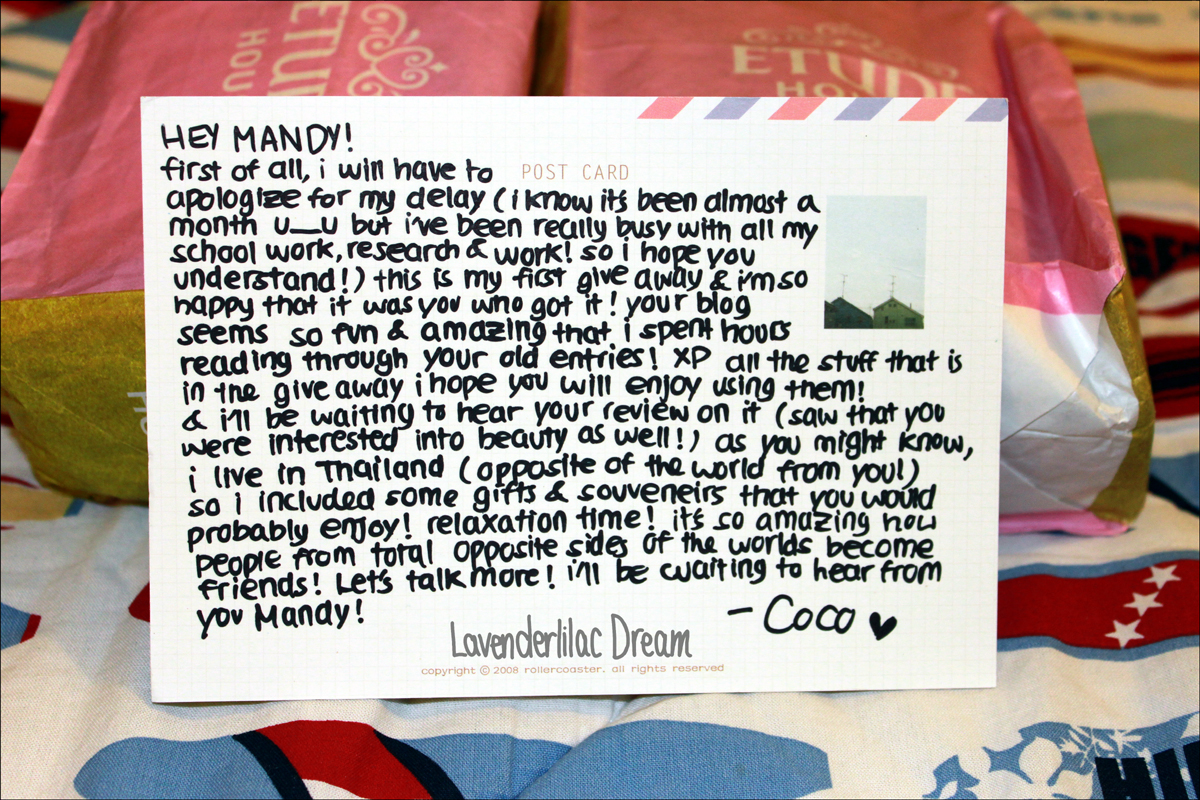 ETUDE
HOU
ETUDE
HOU
HEY MANDY!
first of all, i will have to
POST CARD
apologize for my delay (i know it's been almost a
month u__u but i've been really busy with all my
school work, research & work! so i hope you
understand!) this is my first give away & i'm so
happy that it was you who got it! your blog
seems so fun & amazing that i spent hours
reading through your old entries! XP all the stuff that is
in the give away i hope you will enjoy using them!
& i'll be waiting to hear your review on it (saw that you
were interested into beauty as well!) as you might know,
i live in Thailand (opposite of the world from you!)
so i included some gifts & souveneirs that you would
probably enjoy! relaxation time! it's so amazing how
people from total opposite sides of the worlds become
friends! Let's talk more! i'll be waiting to hear from
you Mandy!
- Coco ♥
Lavenderlilac Dream
copyright © 2008 rollercoaster. all rights reserved